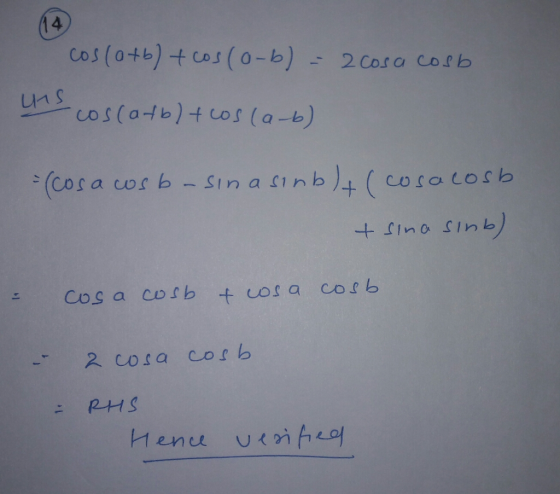 14
cos(a+b) + cos(a-b) = 2cosa cosb
LHS cos(a+b) + cos(a-b)
= (cosa cosb - sina sinb) + (cosa cosb
+ sina sinb)
= cosa cosb + cosa cosb
= 2 cosa cosb
= RHS
Hence verified